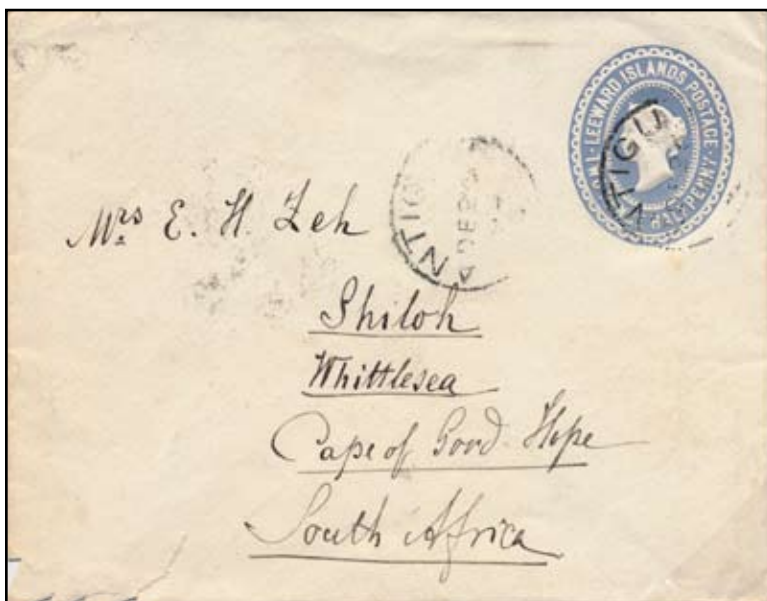 LEEWARD ISLANDS POSTAGE
TWO AND HALF PENNY
ANTIGU
ANTIG
DE 29
Mrs E. H. Zeh
Shiloh
Whittlesea
Cape of Good Hope
South Africa